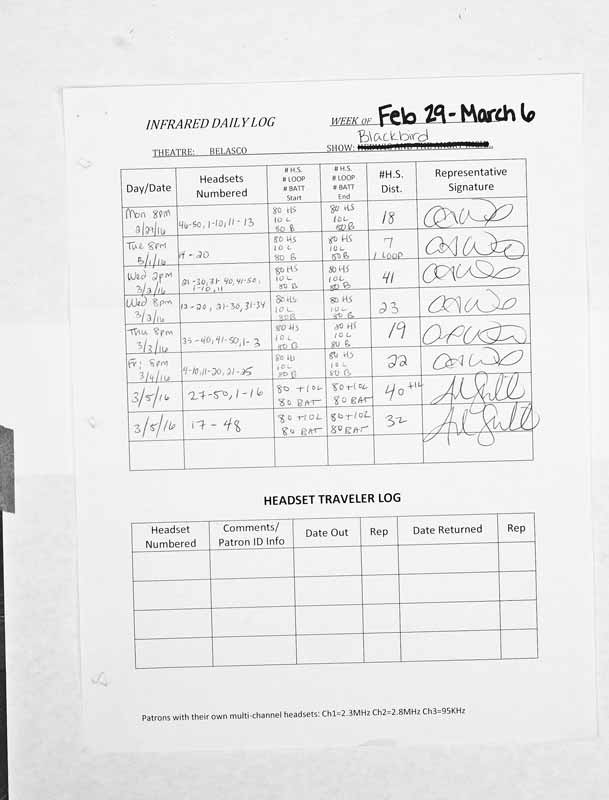 INFRARED DAILY LOG WEEK OF Feb 29-March 6
Blackbird
THEATRE: BELASCO SHOW:
Day/Date Headsets Numbered # H.S. # LOOP # BATT Start # H.S. # LOOP # BATT End #H.S. Dist. Representative Signature
Mon 8pm 2/29/16 46-50, 1-10, 11-13 80 HS 10 L 80 B 80 HS 10 L 80 B 18
Tue 8pm 3/1/16 14-20 80 HS 10 L 80 B 80 HS 10 L 80 B 7 1 LOOP
Wed 2pm 3/2/16 21-30, 31-40, 41-50, 1-10, 11 80 HS 10 L 80 B 80 HS 10 L 80 B 41
Wed 8pm 3/2/16 12-20, 21-30, 31-34 80 HS 10 L 80 B 80 HS 10 L 80 B 23
Thu 8pm 3/3/16 35-40, 41-50, 1-3 80 HS 10 L 80 B 80 HS 10 L 80 B 19
Fri 8pm 3/4/16 4-10, 11-20, 21-25 80 HS 10 L 80 B 80 HS 10 L 80 B 22
3/5/16 27-50, 1-16 80 +10L 80 BAT 80+10L 80 BAT 40 +1L
3/5/16 17-48 80 +10L 80 BAT 80+10L 80 BAT 32
HEADSET TRAVELER LOG
Headset Numbered Comments/ Patron ID Info Date Out Rep Date Returned Rep
Patrons with their own multi-channel headsets: Ch1=2.3MHz Ch2=2.8MHz Ch3=95KHz